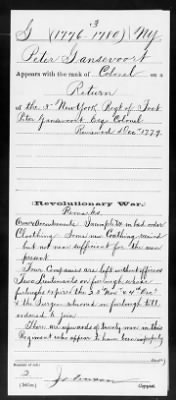 G 3 (1776-1780) NY
Peter Gansevoort
Appears with the rank of Colonel on a
Return
of the 3d New York Regt of Foot
Peter Gansevoort Esqr Colonel
Reviewed 1 Decr 1779.
Revolutionary War.
Remarks
Arms Accoutrements in bad order
Cloathing Some new Coathing received
but not now sufficient for the men
present
Four Companies are left without officers
Two Lieutenants on furlough whose
furloughs expired the 25 Novr & 4 Decr
& the Surgn absent on furlough till
ordered to join
There are upwards of twenty men in this
Regiment who appear to have been
Number of roll:
2
Johnson
Copyist.